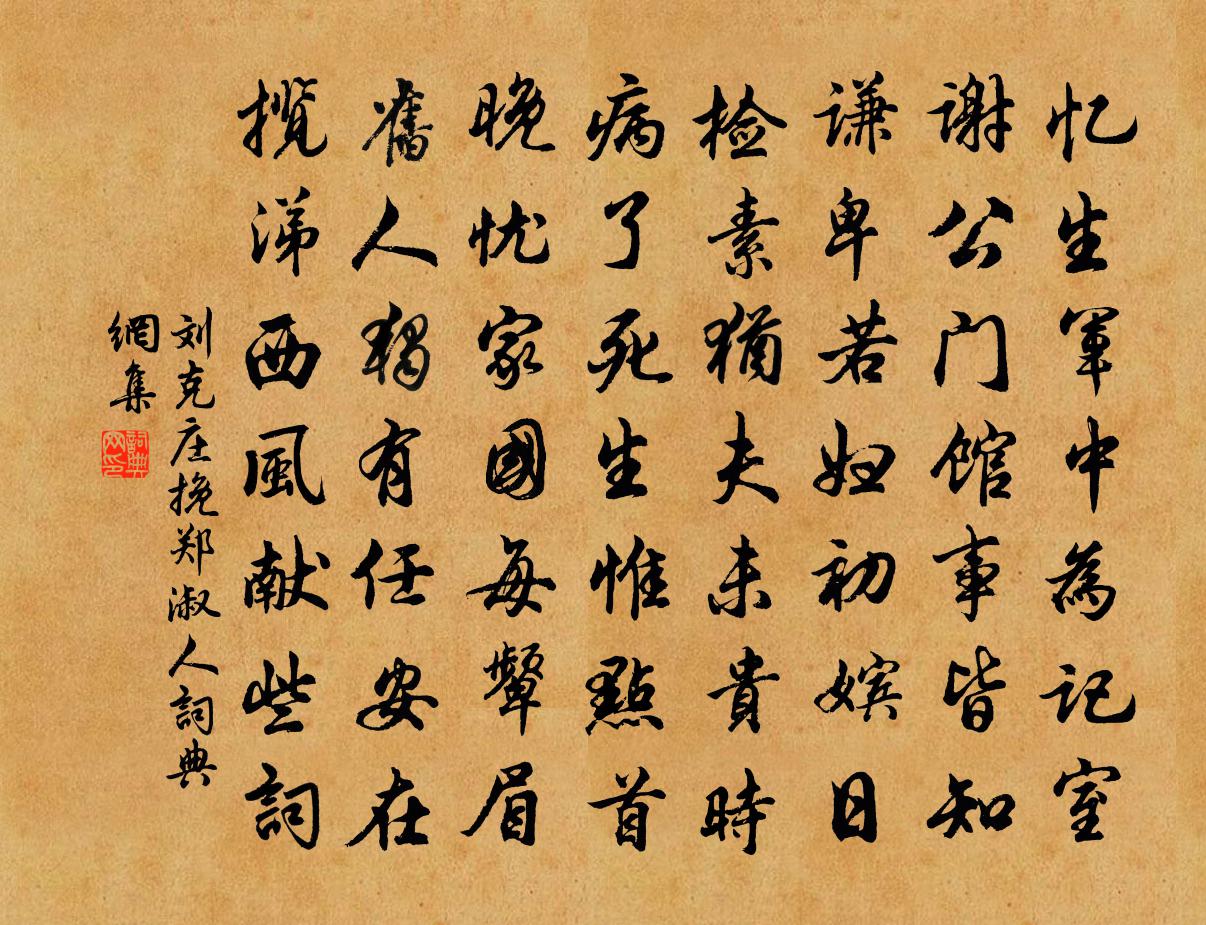 忆生军中為记室
谢公门馆事皆知
谦卑若妇初嫔日
检素猶夫未貴時
病了死生惟點首
晚忧家國每颦眉
舊人独有任安在
揽涕西風献些詞
刘克庄挽郑淑人詞典
網集
詞典网印